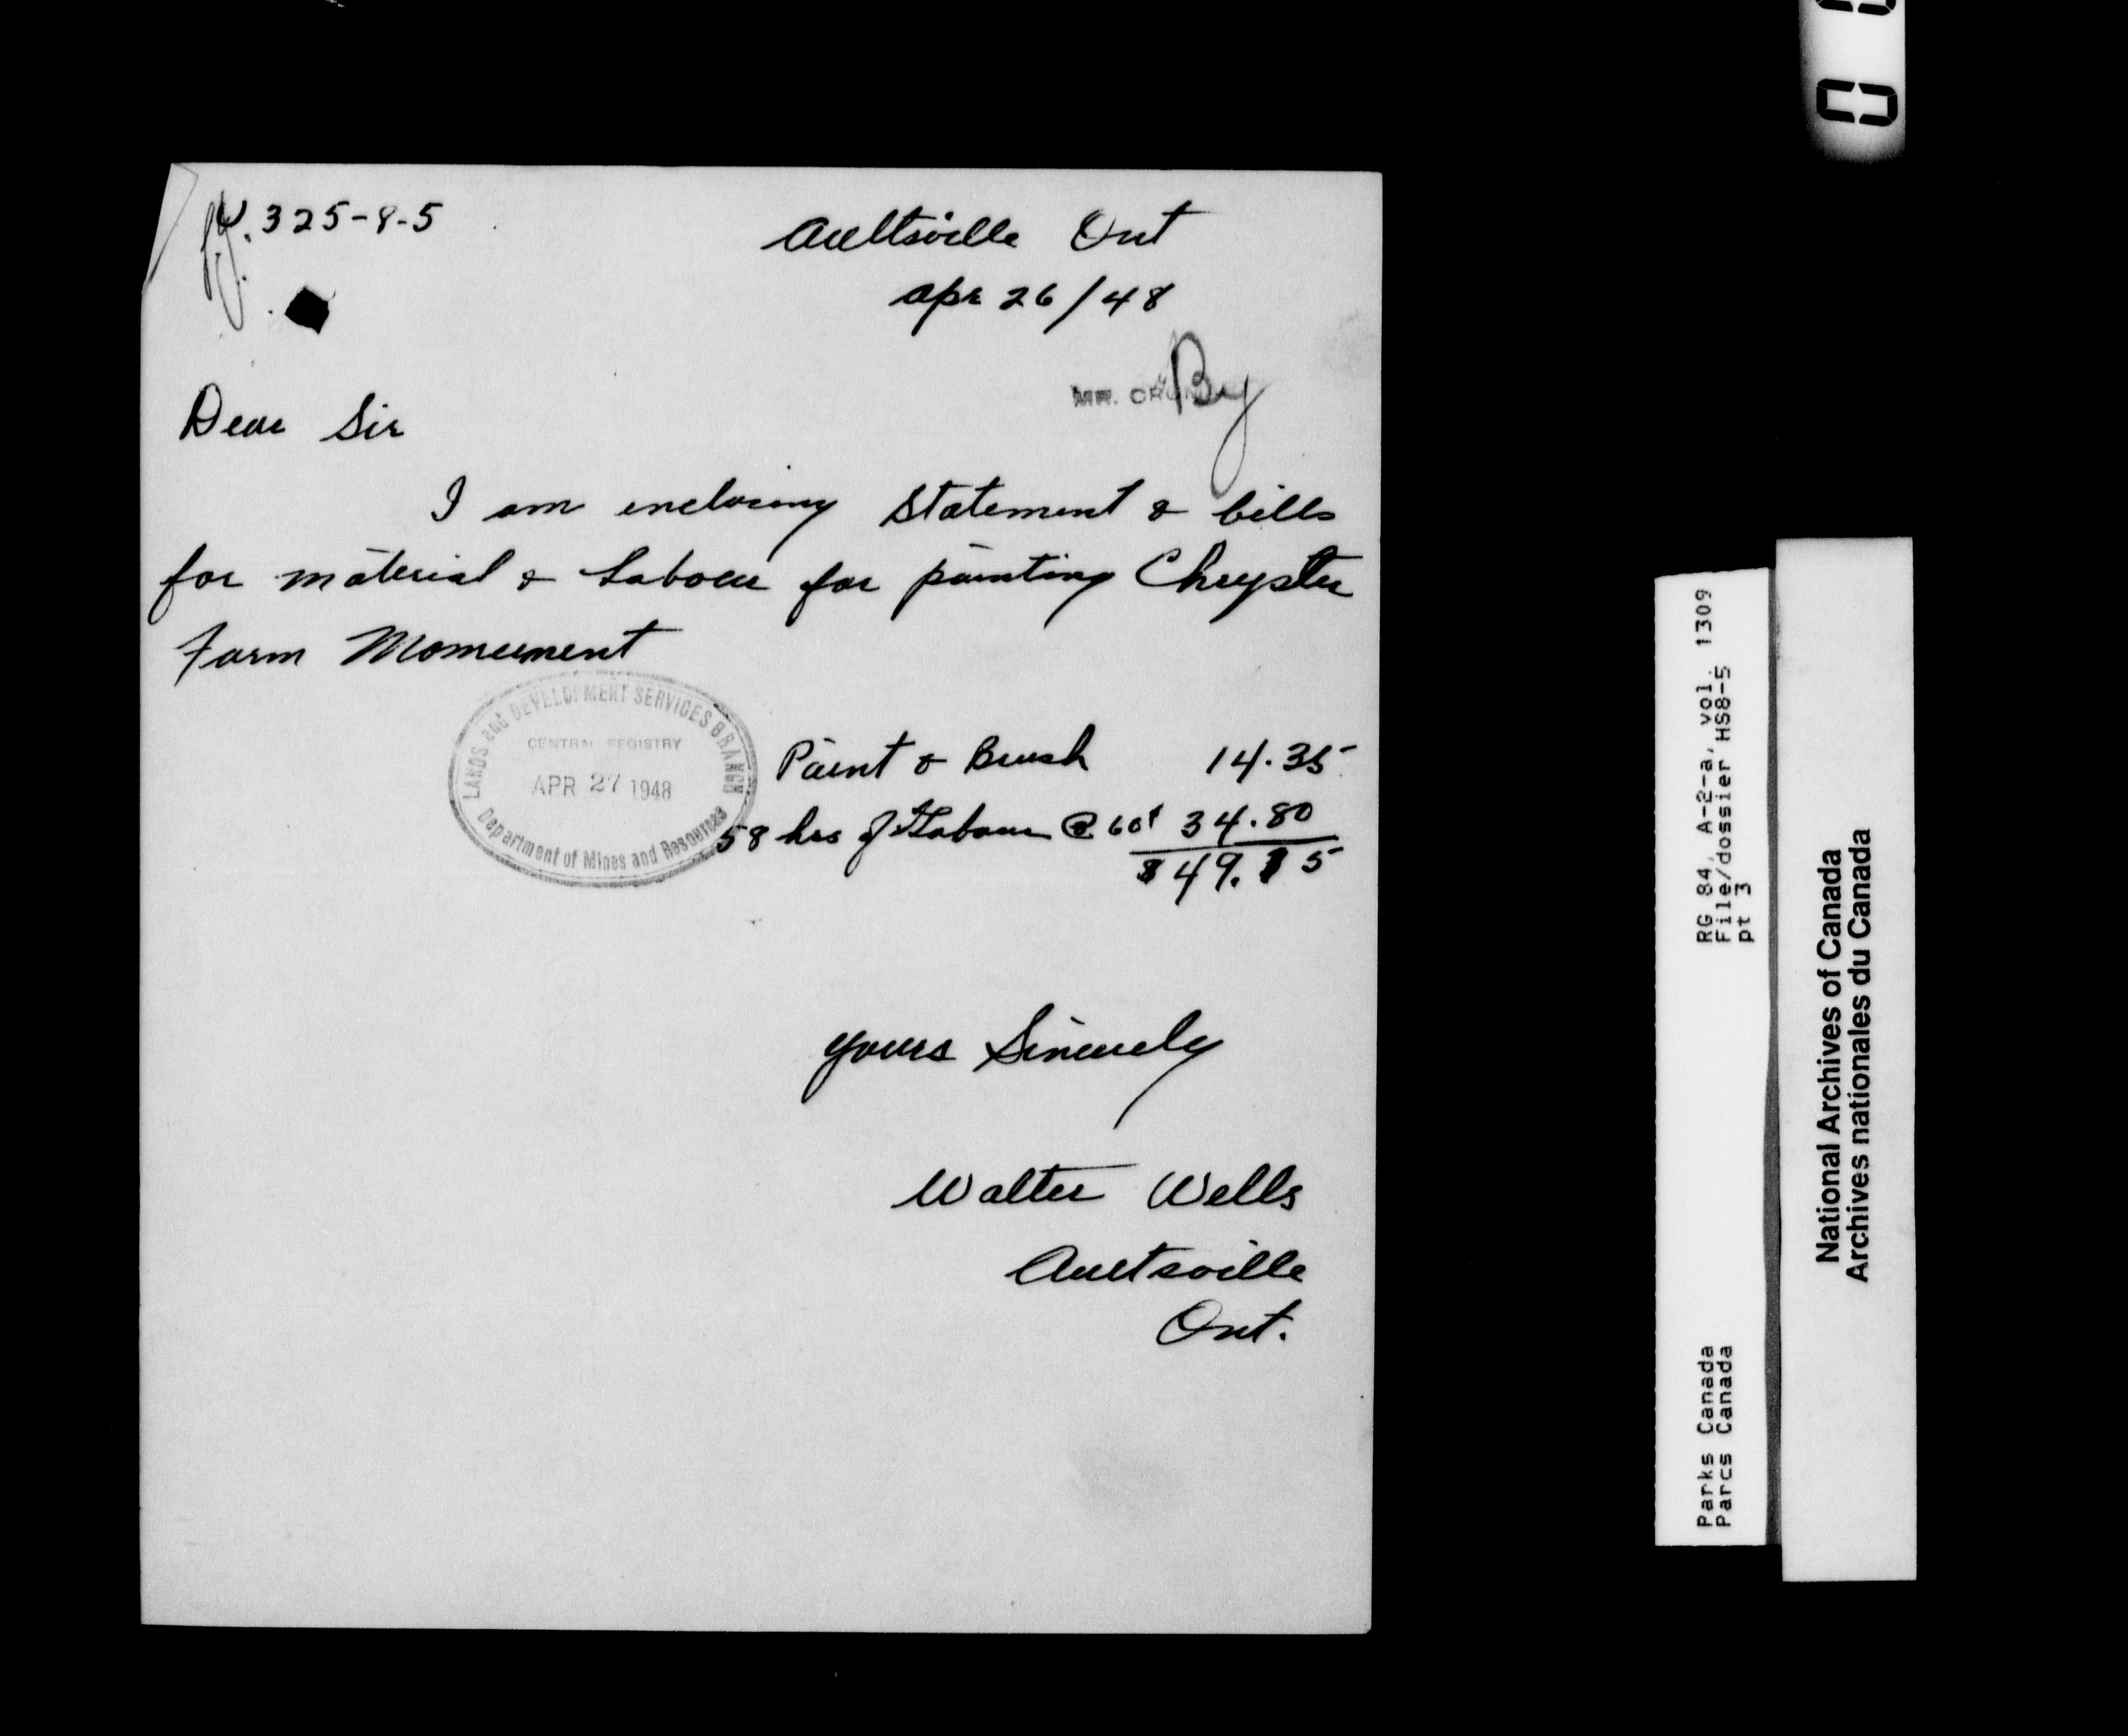 325-8-5
Aultsville Ont
Apr 26/48
MR.
By
Dear Sir
I am enclosing statement & bills
for material & Labour for painting Chrysler
Farm Monument
LANDS and DEVELOPMENT SERVICES BRANCH
CENTRAL REGISTRY
APR 27 1948
Department of Mines and Resources
Paint & Brush 14.35
58 hrs of Labour @ 60¢ 34.80
$49.15
Yours Sincerely
Walter Wells
Aultsville
Ont.
RG 84, A-2-a, vol. 1309
File/dossier HS8-5
pt 3
Parks Canada
Parcs Canada
National Archives of Canada
Archives nationales du Canada